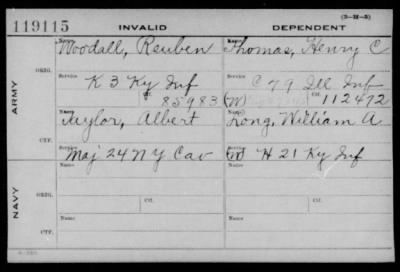 (3-H-5)
119115 INVALID DEPENDENT
Name Name
Woodall, Reuben Thomas, Henry C
ORIG.
Service Service
K 3 Ky Inf C 79 Ill Inf
Ctf. Ctf.
85983 (W) 112472
ARMY
Name Name
Taylor, Albert Long, William A
CTF.
Service
Maj 24 N Y Cav H 21 Ky Inf
NAVY
Name Ctf. Name Ctf.
ORIG.
Name Name
CTF.